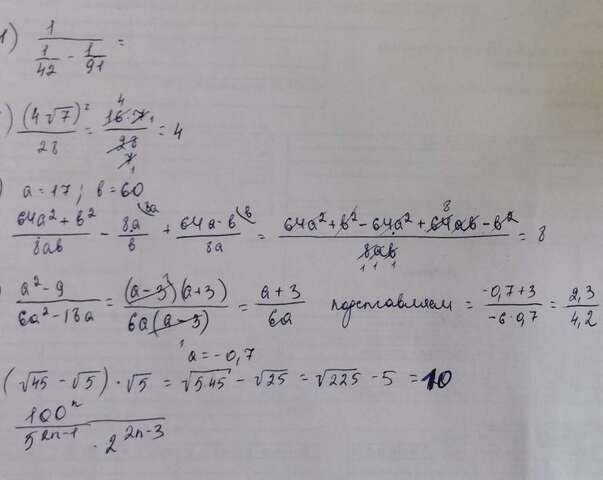 1) 1 / (1/42 - 1/91) =
) (4√7)² / 28 = 16·7 / 28 = 4
) a = 17; b = 60
(64a² + b²) / 8ab - 8a / b + (64a - b) / 8a = (64a² + b² - 64a² + 64ab - b²) / 8ab = 8
) (a² - 9) / (6a² - 18a) = (a - 3)(a + 3) / 6a(a - 3) = (a + 3) / 6a подставляем = (-0,7 + 3) / (-6·0,7) = 2,3 / 4,2
a = -0,7
(√45 - √5)·√5 = √5·45 - √25 = √225 - 5 = 10
100ⁿ / (5^(2n-1) · 2^(2n-3))